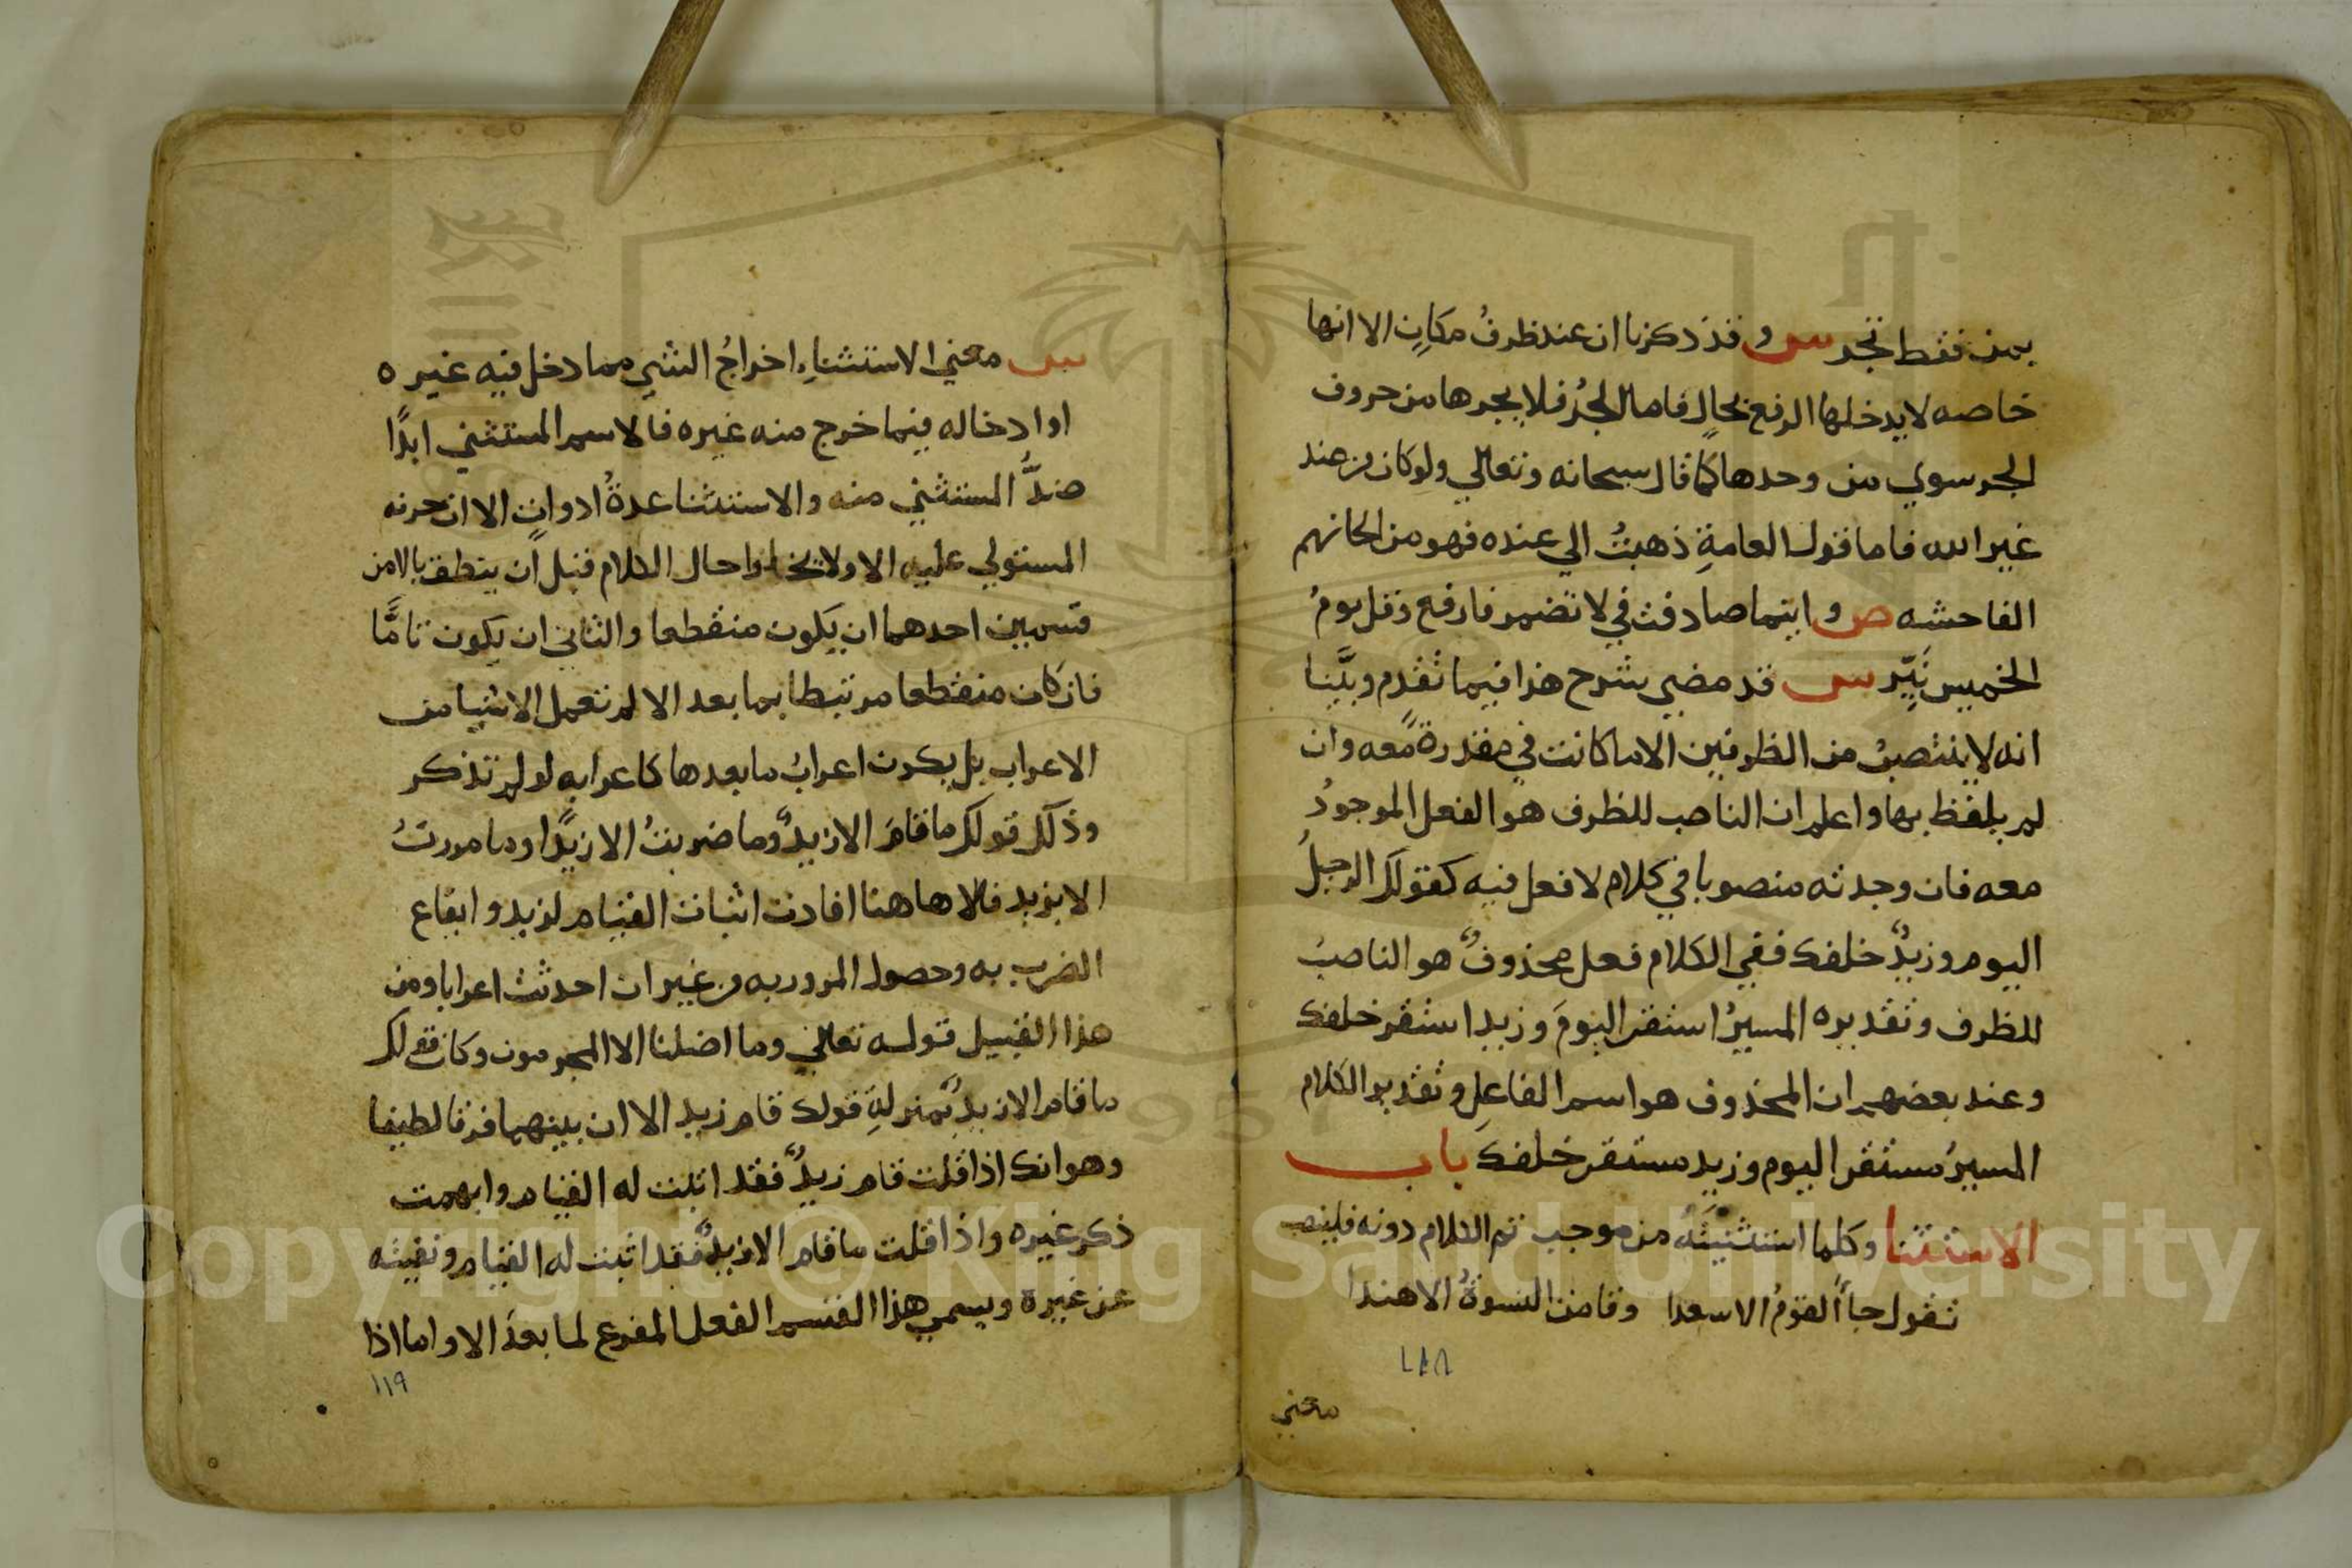 بمن فقط تجر س و قد ذكرنا ان عند ظرفُ مكانٍ الا انها
خاصه لا يدخلها الرفع بحالٍ فاما الجرُ فلا يجرها من حروف
الجر سوي من وحدها كما قال سبحانه وتعالي ولو كان من عند
غير الله فاما قول العامةِ ذهبتُ الي عنده فهو من الحانهم
الفاحشه ص و اينما صادفت في لا تضمر فارفع وقل يومُ
الخميس نَيِّر س قد مضي شرح هذا فيما تقدم وبيَّنا
انه لا ينتصبُ من الظرفين الا ما كانت في مقدرةً معه وان
لم يلفظ بها واعلم ان الناصب للظرف هو الفعل الموجودُ
معه فان وجدته منصوبا في كلام لا فعل فيه كقولك الرحيلُ
اليوم وزيدٌ خلفك ففي الكلام فعل محذوفٌ هو الناصبُ
للظرف وتقديره المسيرُ استقر اليومَ وزيد استقر خلفك
وعند بعضهم ان المحذوف هو اسم الفاعلِ وتقدير الكلام
المسيرُ مستقر اليوم وزيد مستقر خلفك باب
الاستثنا وكلما استثنيتَهُ من موجب تم الكلام دونه فلينصب
تقول جاأ القومُ الا سعدا وقامت النسوةُ الا هندا
١١٨
معني
س معني الاستثناءِ اخراجُ الشي مما دخل فيه غيره
او ادخاله فيما خرج منه غيره فالاسم المستثني ابدًا
ضدُّ المستثني منه والاستثنا عدةُ ادواتٍ الا ان حرفه
المستولي عليه الا ولا يخلوا حال الكلام قبل ان ينطق بالا من
قسمين احدهما ان يكون منقطعا والثاني ان يكون تامًّا
فان كان منقطعا مرتبطا بما بعد الا لم تعمل الا شيا من
الاعراب بل يكون اعرابُ ما بعدها كاعرابه لو لم تذكر
وذلك قولك ما قام الا زيدٌ وما ضربتُ الا زيدًا وما مررتُ
الا بزيد فالا هاهنا افادت اثبات القيام لزيد وايقاع
الضرب به وحصول المرور به من غير ان احدثت اعرابا ومن
هذا القبيل قوله تعالي وما اضلنا الا المجرمون وكان قولك
ما قام الا زيدٌ بمنزلةِ قولك قام زيد الا ان بينهما فرقا لطيفا
وهو انك اذا قلت قام زيدٌ فقد اثبت له القيام وابهمت
ذكر غيره واذا قلت ما قام الا زيدٌ فقد اثبت له القيام ونفيته
عن غيره ويسمي هذا القسم الفعل المفرع لما بعدَ الا واما اذا
١١٩
Copyright © King Saud University
1957